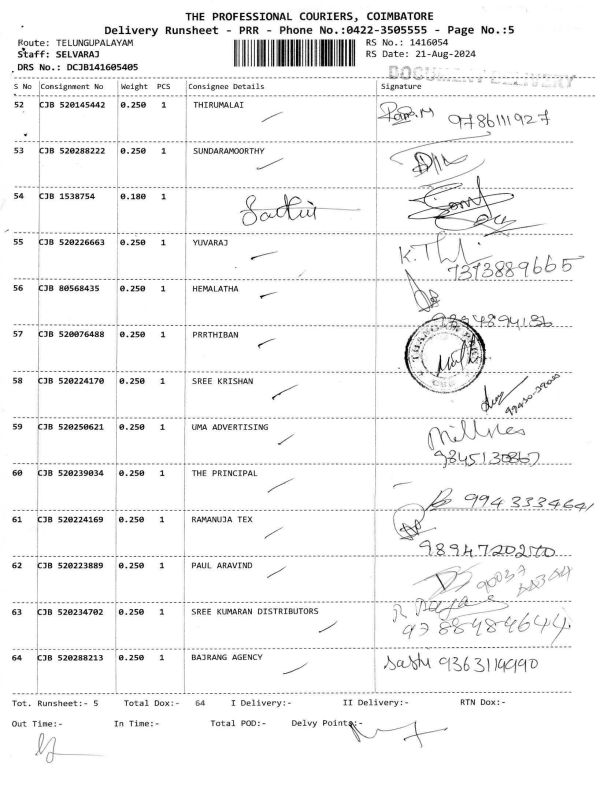 THE PROFESSIONAL COURIERS, COIMBATORE
Delivery Runsheet - PRR - Phone No.:0422-3505555 - Page No.:5
Route: TELUNGUPALAYAM RS No.: 1416054
Staff: SELVARAJ RS Date: 21-Aug-2024
DRS No.: DCJB141605405
DOCUMENT DELIVERY
S No Consignment No Weight PCS Consignee Details Signature
52 CJB 520145442 0.250 1 THIRUMALAI 9786111927
53 CJB 520288222 0.250 1 SUNDARAMOORTHY
54 CJB 1538754 0.180 1
55 CJB 520226663 0.250 1 YUVARAJ 7373889665
56 CJB 80568435 0.250 1 HEMALATHA 9894894136
57 CJB 520076488 0.250 1 PRRTHIBAN
58 CJB 520224170 0.250 1 SREE KRISHAN
59 CJB 520250621 0.250 1 UMA ADVERTISING 9845130867
60 CJB 520239034 0.250 1 THE PRINCIPAL 9943334641
61 CJB 520224169 0.250 1 RAMANUJA TEX
62 CJB 520223889 0.250 1 PAUL ARAVIND
63 CJB 520234702 0.250 1 SREE KUMARAN DISTRIBUTORS 9788484644
64 CJB 520288213 0.250 1 BAJRANG AGENCY
Tot. Runsheet:- 5 Total Dox:- 64 I Delivery:- II Delivery:- RTN Dox:-
Out Time:- In Time:- Total POD:- Delvy Points:-